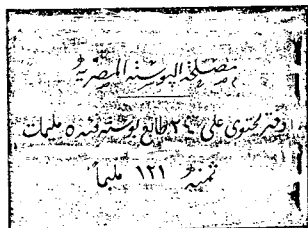 مصلحة البوستة المصرية
دفتر يحتوى على ٢٤ طابع بوستة فئة ٥ مليمات
ثمنه ١٢١ مليماً